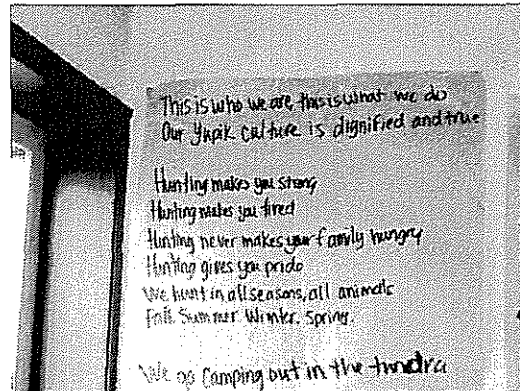 This is who we are, this is what we do
Our Yupik culture is dignified and true
Hunting makes you strong
Hunting makes you tired
Hunting never makes your family hungry
Hunting gives you pride
We hunt in all seasons, all animals
Fall, Summer, Winter, Spring.
We go Camping out in the tundra